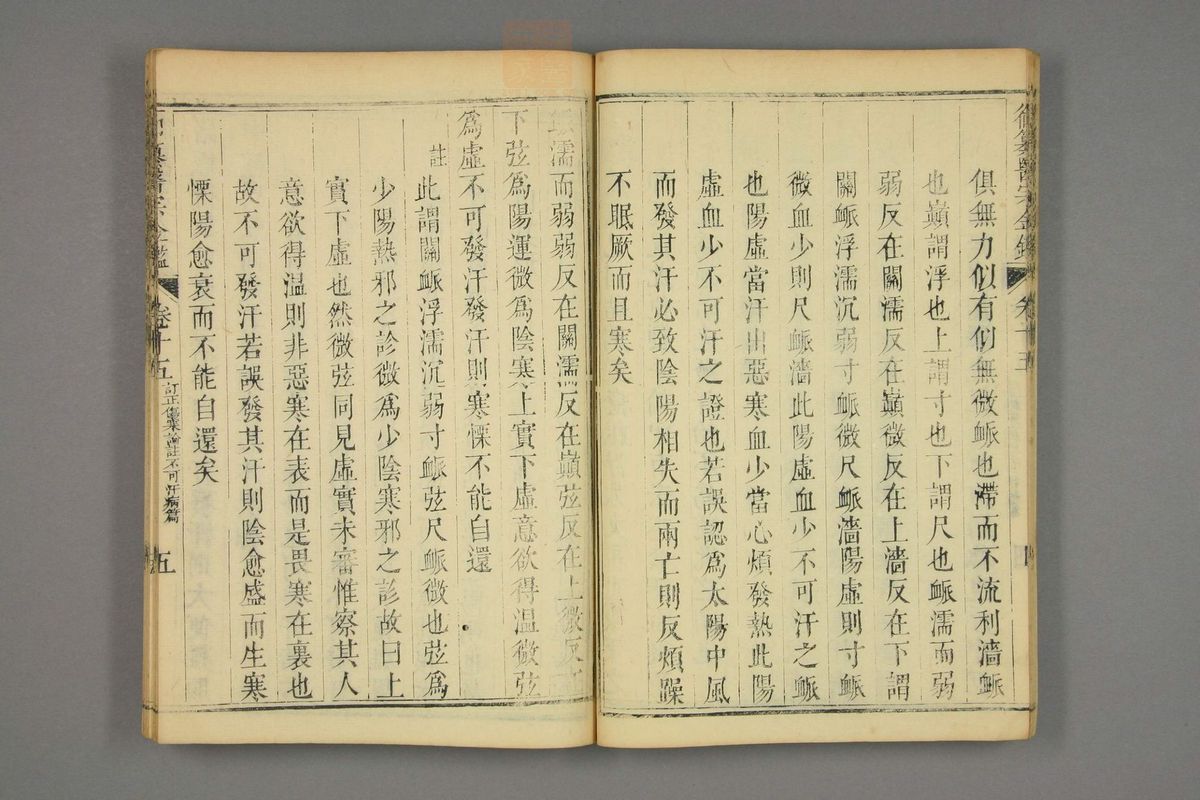 俱無力似有似無微衇也滯而不流利濇衇
也巔謂浮也上謂寸也下謂尺也衇濡而弱
弱反在關濡反在巔微反在上濇反在下謂
關衇浮濡沉弱寸衇微尺衇濇陽虛則寸衇
微血少則尺衇濇此陽虛血少不可汗之衇
也陽虛當汗出惡寒血少當心煩發熱此陽
虛血少不可汗之證也若誤認爲太陽中風
而發其汗必致陰陽相失而兩亡則反煩躁
不眠厥而且寒矣
濡而弱弱反在關濡反在巔弦反在上微反
下弦爲陽運微爲陰寒上實下虛意欲得温微弦
爲虛不可發汗發汗則寒慄不能自還
註
此謂關衇浮濡沉弱寸衇弦尺衇微也弦爲
少陽熱邪之診微爲少陰寒邪之診故曰上
實下虛也然微弦同見虛實未審惟察其人
意欲得温則非惡寒在表而是畏寒在裏也
故不可發汗若誤發其汗則陰愈盛而生寒
慄陽愈衰而不能自還矣
卷十五
訂正傷寒論註不可汗病篇
五